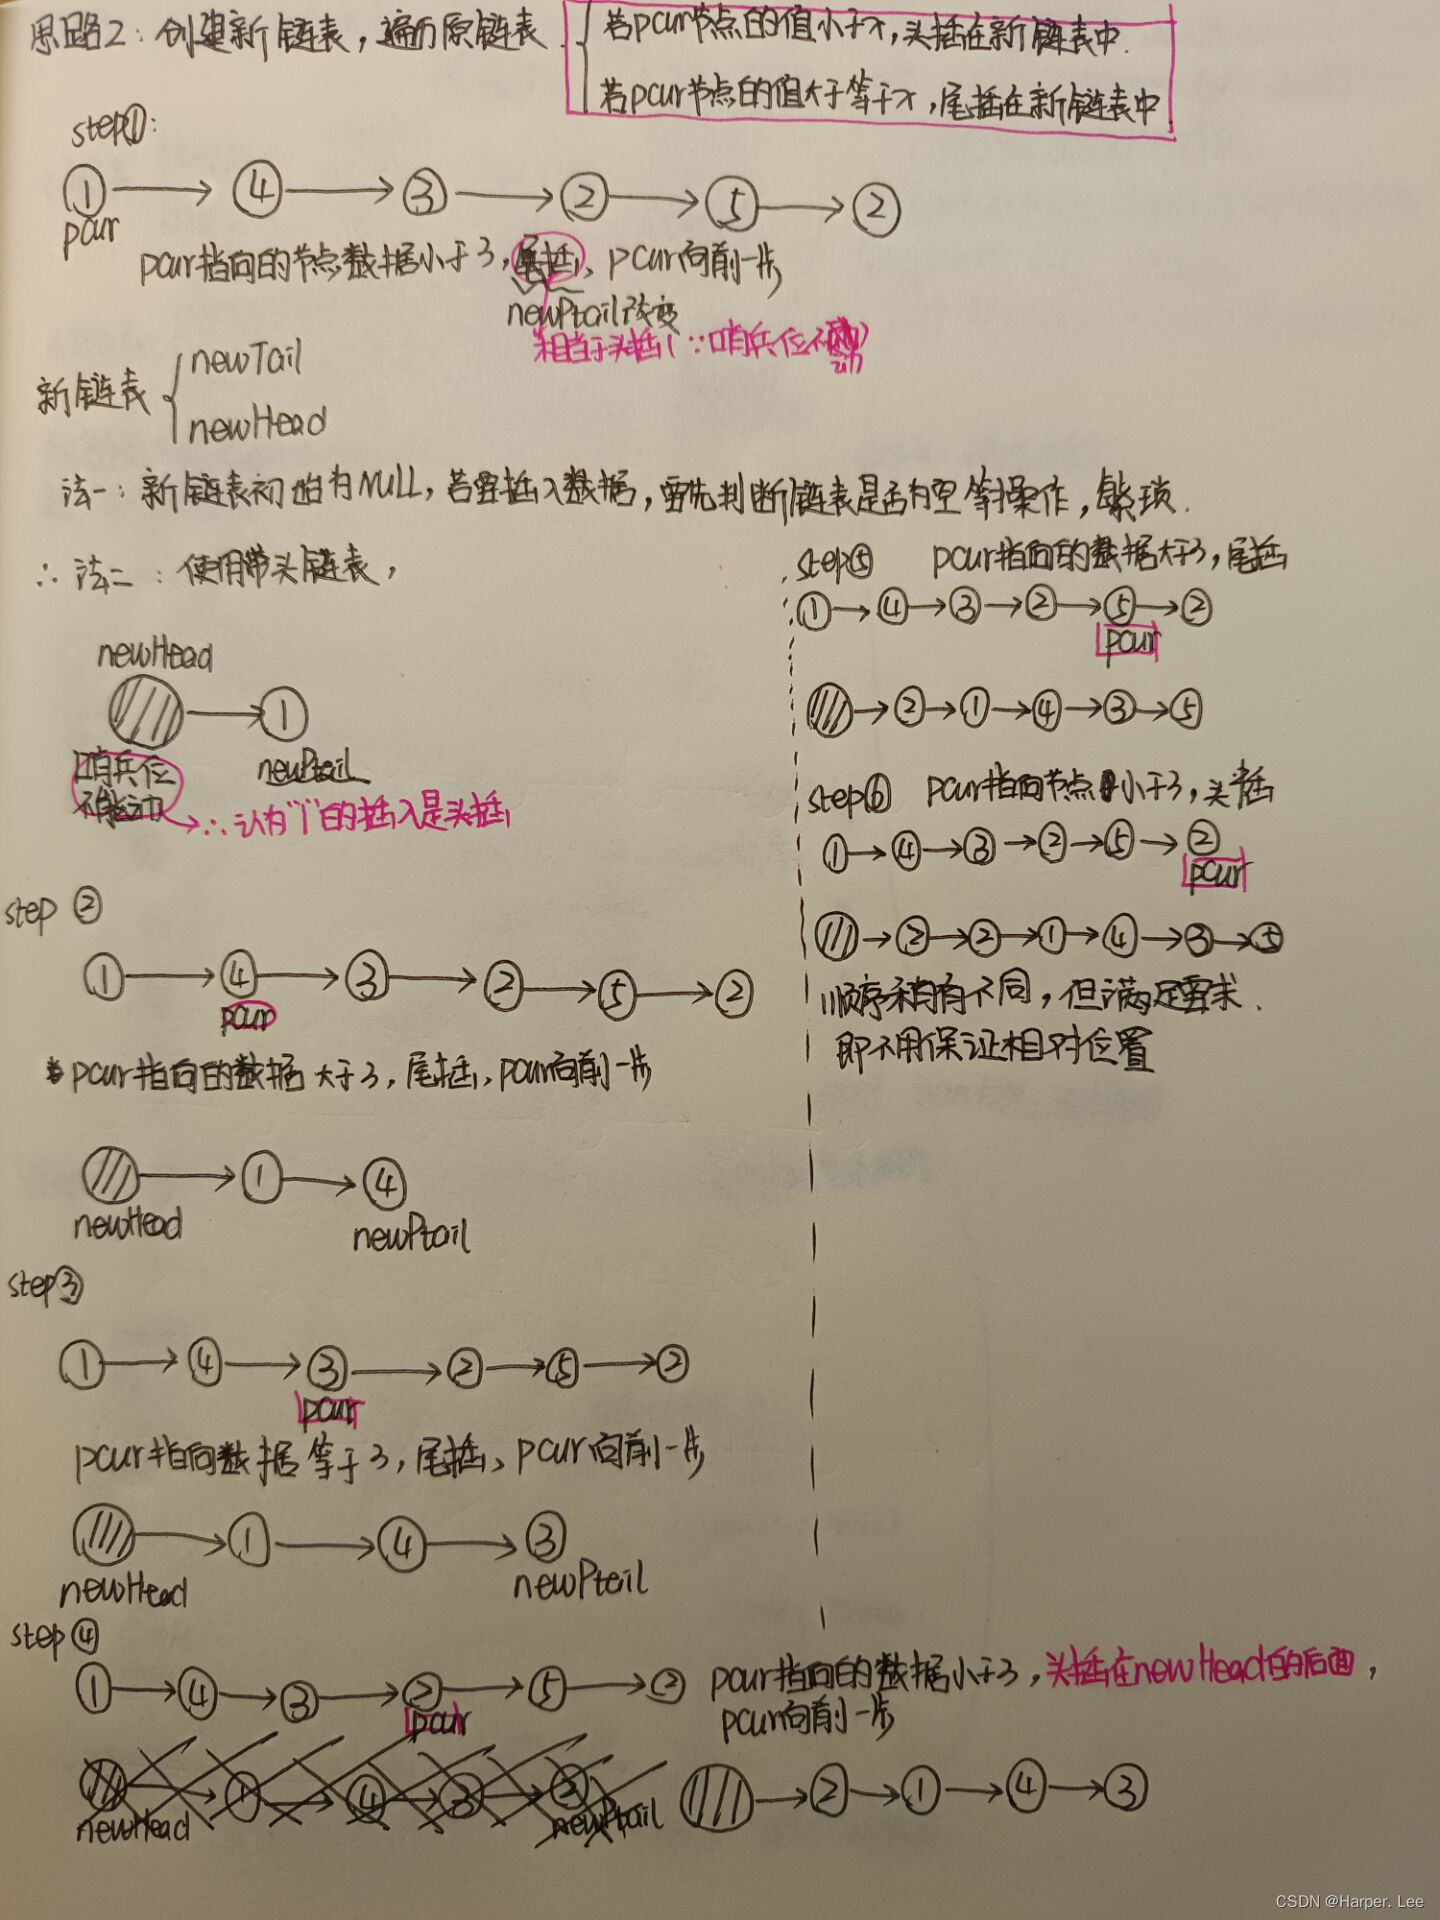 思路2：创建新链表，遍历原链表
若pcur节点的值小于x，头插在新链表中.
若pcur节点的值大于等于x，尾插在新链表中
step①：
① ④ ③ ② ⑤ ②
pcur
pcur指向的节点数据小于3，尾插、pcur向前一步
newPtail改变
相当于头插(∵哨兵位不动)
新链表
newTail
newHead
法一：新链表初始为NULL，若要插入数据，需先判断链表是否为空等操作，繁琐.
∴法二：使用带头链表，
newHead
①
哨兵位
不能动
newPtail
∴认为"1"的插入是头插
step②
① ④ ③ ② ⑤ ②
pcur
pcur指向的数据大于3，尾插、pcur向前一步
① ④
newHead newPtail
step③
① ④ ③ ② ⑤ ②
pcur
pcur指向数据等于3，尾插、pcur向前一步
① ④ ③
newHead newPtail
step④
① ④ ③ ② ⑤ ②
pcur
pcur指向的数据小于3，头插在newHead的后面，
pcur向前一步
① ④ ③ ②
newHead newPtail
② ① ④ ③
step⑤ pcur指向的数据大于3，尾插
① ④ ③ ② ⑤ ②
pcur
② ① ④ ③ ⑤
step⑥ pcur指向节点小于3，头插
① ④ ③ ② ⑤ ②
pcur
② ② ① ④ ③ ⑤
顺序稍有不同，但满足需求.
即不用保证相对位置
CSDN @Harper. Lee